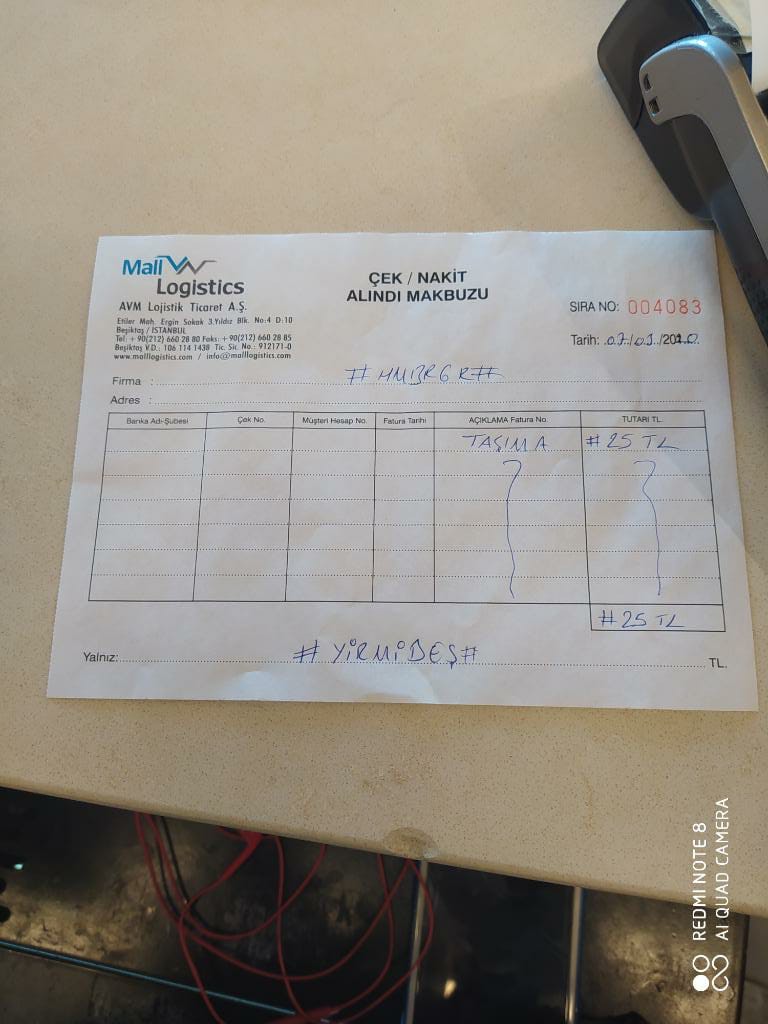 Mall Logistics
AVM Lojistik Ticaret A.Ş.
Etiler Mah. Ergin Sokak 3.Yıldız Blk. No:4 D:10
Beşiktaş / İSTANBUL
Tel: + 90(212) 660 28 80 Faks: + 90(212) 660 28 85
Beşiktaş V.D.: 106 114 1438 Tic. Sic. No.: 912171-0
www.malllogistics.com / info@malllogistics.com
ÇEK / NAKİT
ALINDI MAKBUZU
SIRA NO: 004083
Tarih: 07/01/2020
Firma : #HMBRGR#
Adres :
Banka Adı-Şubesi Çek No. Müşteri Hesap No. Fatura Tarihi AÇIKLAMA Fatura No. TUTARI TL.
TAŞIMA #25 TL
#25 TL
Yalnız: # YİRMİBEŞ# TL.
REDMI NOTE 8
AI QUAD CAMERA